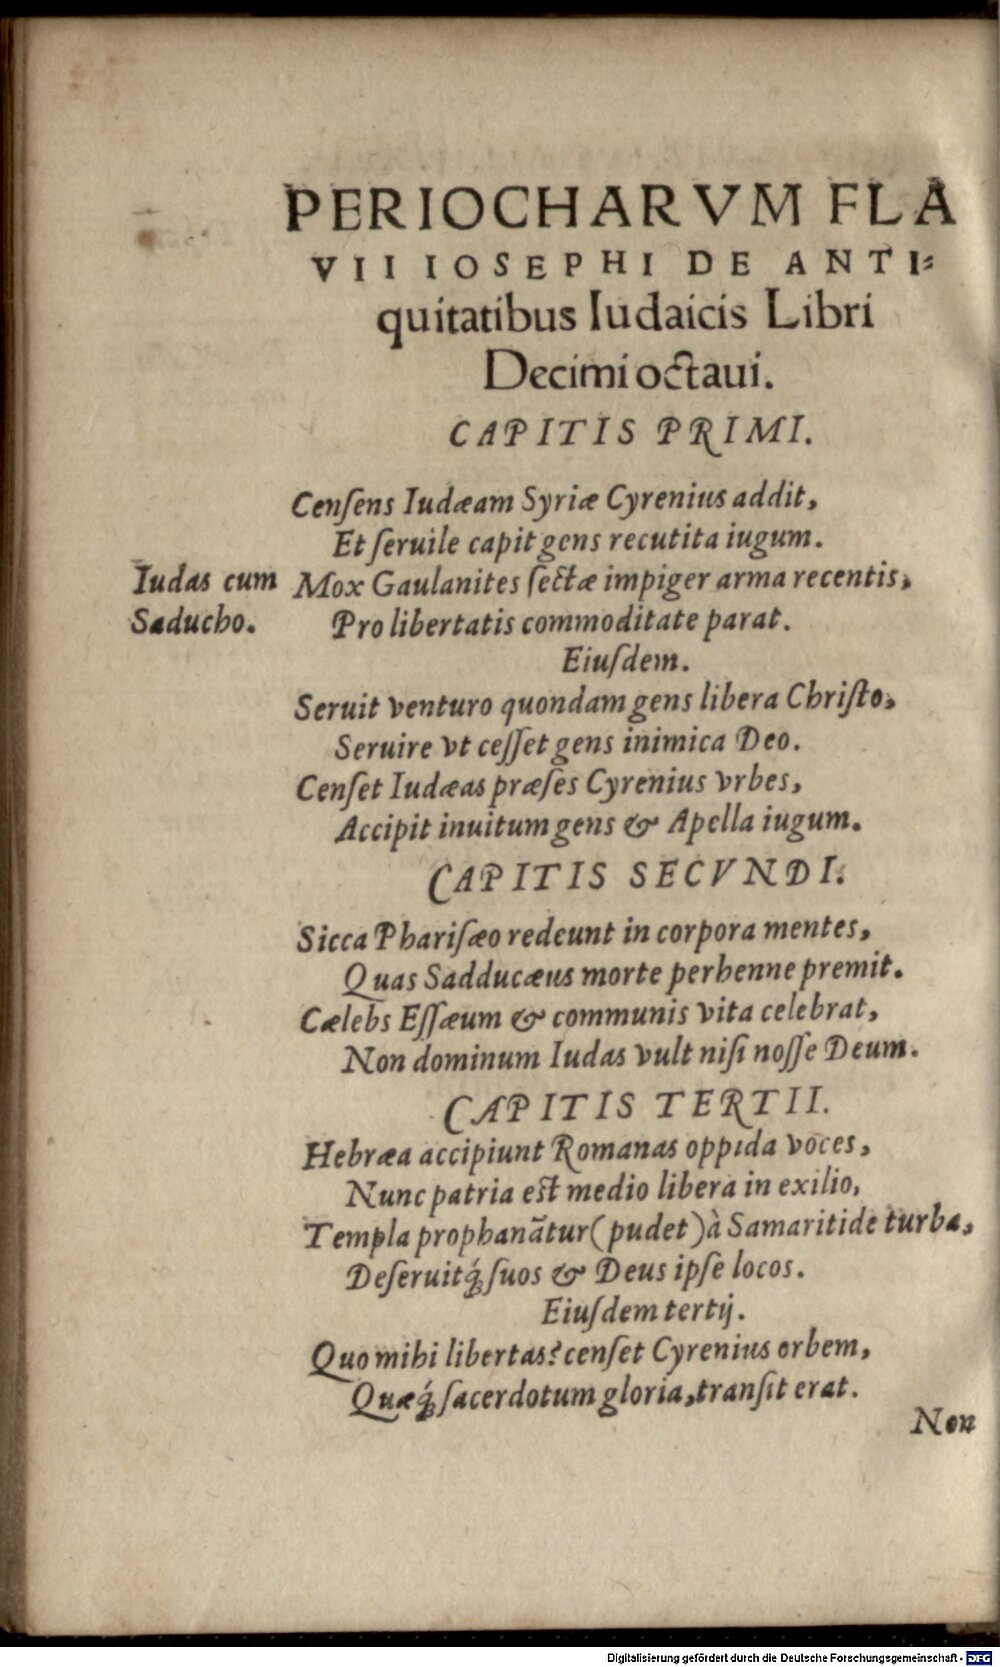 PERIOCHARVM FLA
VII IOSEPHI DE ANTI⸗
quitatibus Iudaicis Libri
Decimi octaui.
CAPITIS PRIMI.
Cenſens Iudæam Syriæ Cyrenius addit,
Et ſeruile capit gens recutita iugum.
Iudas cum
Saducho.
Mox Gaulanites ſectæ impiger arma recentis,
Pro libertatis commoditate parat.
Eiuſdem.
Seruit venturo quondam gens libera Chriſto,
Seruire vt ceſſet gens inimica Deo.
Cenſet Iudæas præſes Cyrenius vrbes,
Accipit inuitum gens & Apella iugum.
CAPITIS SECVNDI.
Sicca Phariſæo redeunt in corpora mentes,
Quas Sadducæus morte perhenne premit.
Cælebs Eſſæum & communis vita celebrat,
Non dominum Iudas vult niſi noſſe Deum.
CAPITIS TERTII.
Hebræa accipiunt Romanas oppida voces,
Nunc patria est medio libera in exilio,
Templa prophanãtur (pudet) à Samaritide turba,
Deſeruitq́; ſuos & Deus ipſe locos.
Eiuſdem tertij.
Quo mihi libertas? cenſet Cyrenius orbem,
Quæq́; ſacerdotum gloria, tranſit erat.
Non
Digitalisierung gefördert durch die Deutsche Forschungsgemeinschaft - DFG